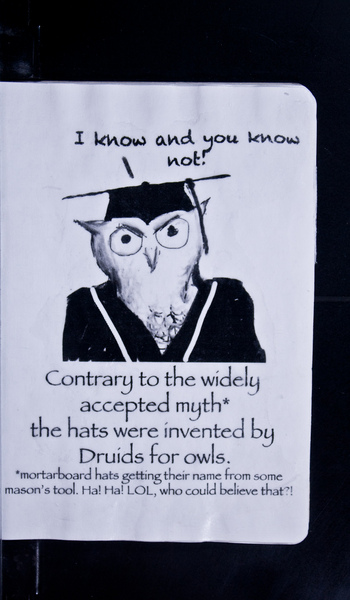 I know and you know
not!
Contrary to the widely
accepted myth*
the hats were invented by
Druids for owls.
*mortarboard hats getting their name from some
mason's tool. Ha! Ha! LOL, who could believe that?!